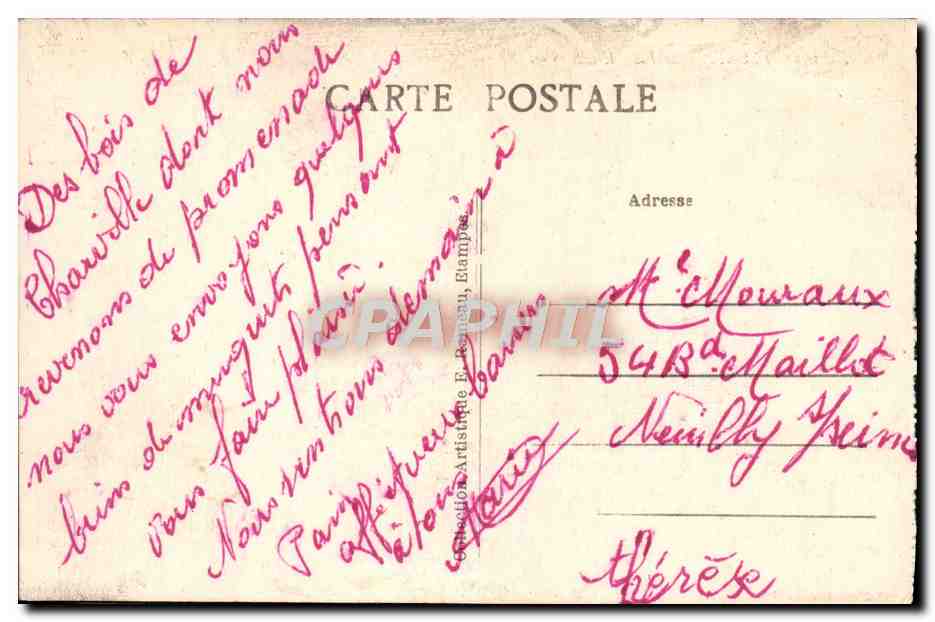 CARTE POSTALE
Des bois de
Charville dont nous
revenons de promenade
nous vous envoyons quelques
brins de muguets pensant
vous faire plaisir.
Nous rentrons demain à
Paris
affectueux baisers
à tous
Adresse
Collection Artistique E. Rameau, Etampes.
CPAPHIL
Mle Mouraux
54 Bd Maillot
Neuilly s/seine
thérèse